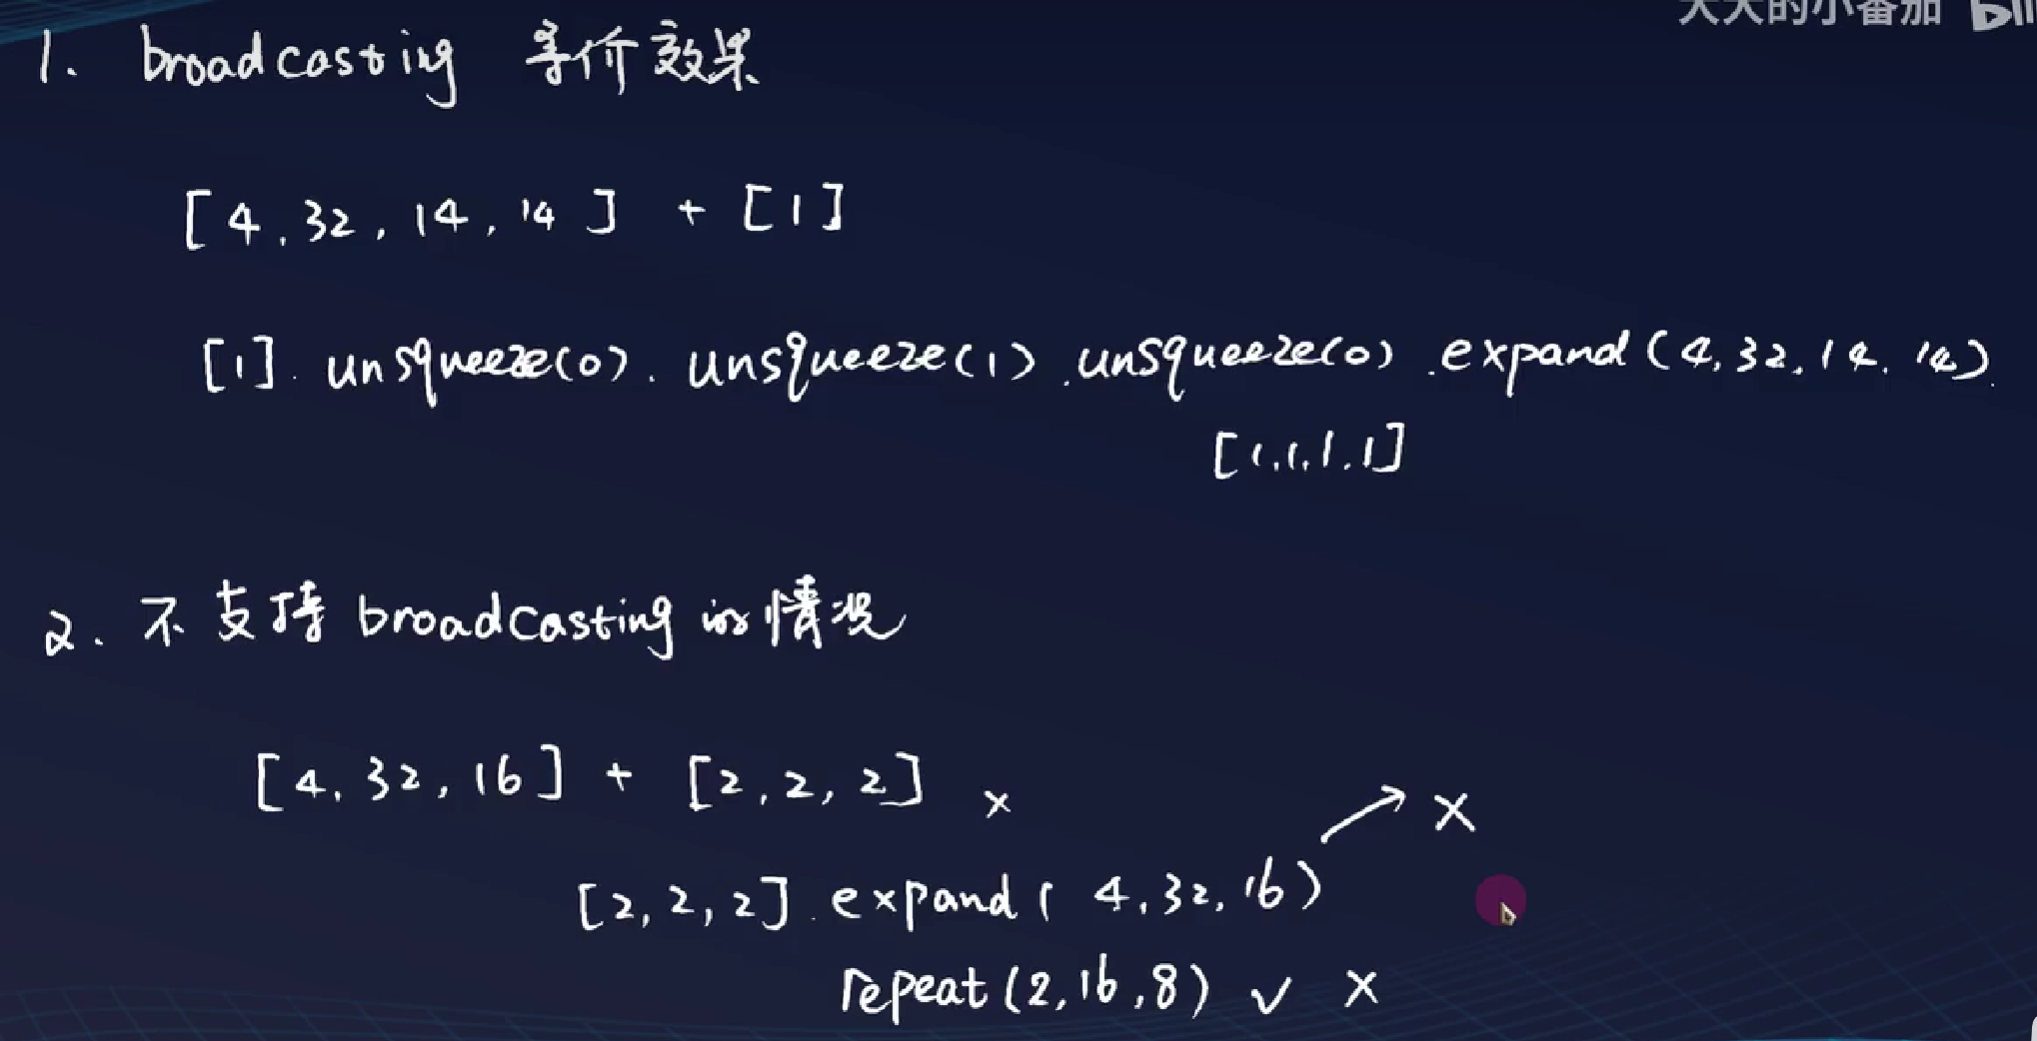 大大的小番茄
1. broadcasting 等价效果
[4, 32, 14, 14] + [1]
[1]. unsqueeze(0). unsqueeze(1). unsqueeze(0). expand(4, 32, 14, 14).
[1,1,1,1]
2. 不支持 broadcasting 的情况
[4, 32, 16] + [2, 2, 2] ×
[2, 2, 2]. expand( 4, 32, 16) ↗ ×
repeat(2, 16, 8) ✓ ×